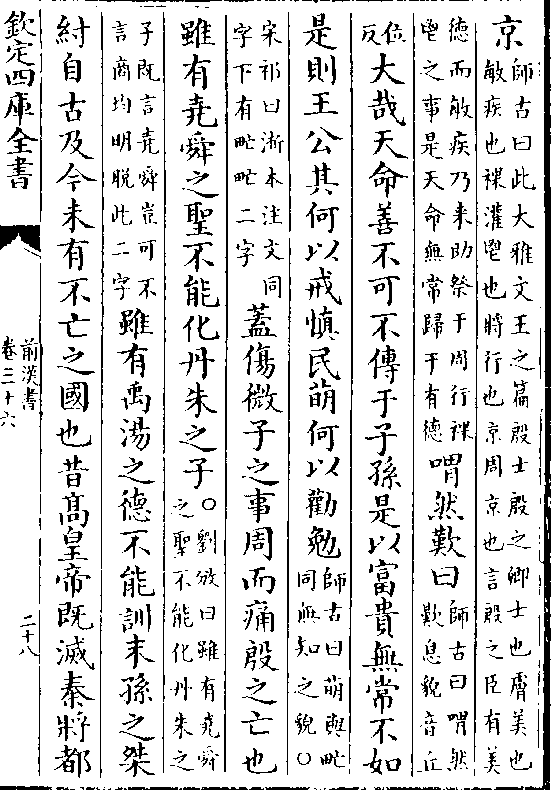 京師古曰此大雅文王之篇殷士殷之卿士也膚美也敏疾也祼灌鬯也將行也京周京也言殷之臣有美
德而敏疾乃来助祭于周行祼鬯之事是天命無常歸于有德喟然歎曰師古曰喟然歎息貌音丘
位反大哉天命善不可不傳于子孫是以富貴無常不如
是則王公其何以戒慎民萌何以勸勉師古曰萌與甿同無知之貌○
宋祁曰淅本注文同字下有甿甿二字蓋傷微子之事周而痛殷之亡也
雖有堯舜之聖不能化丹朱之子○劉攽曰雖有堯舜之聖不能化丹朱之
子既言堯舜豈可不言商均明脱此二字雖有禹湯之德不能訓末孫之桀
紂自古及今未有不亡之國也昔髙皇帝既滅秦將都
欽定四庫全書
前漢書
卷三十六
二十八